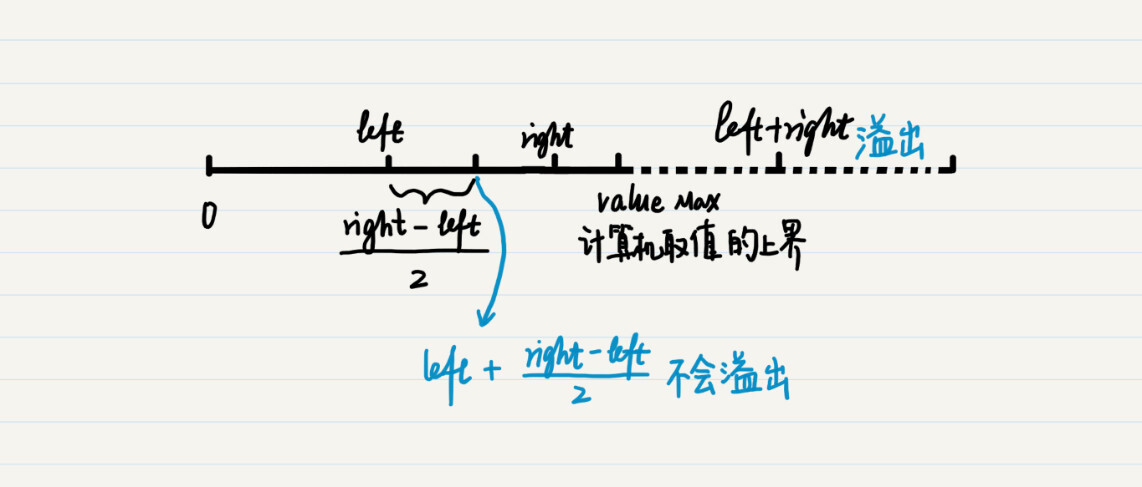 left right left+right 溢出
0 value Max
计算机取值的上界
right - left
2
left + right - left
2
不会溢出